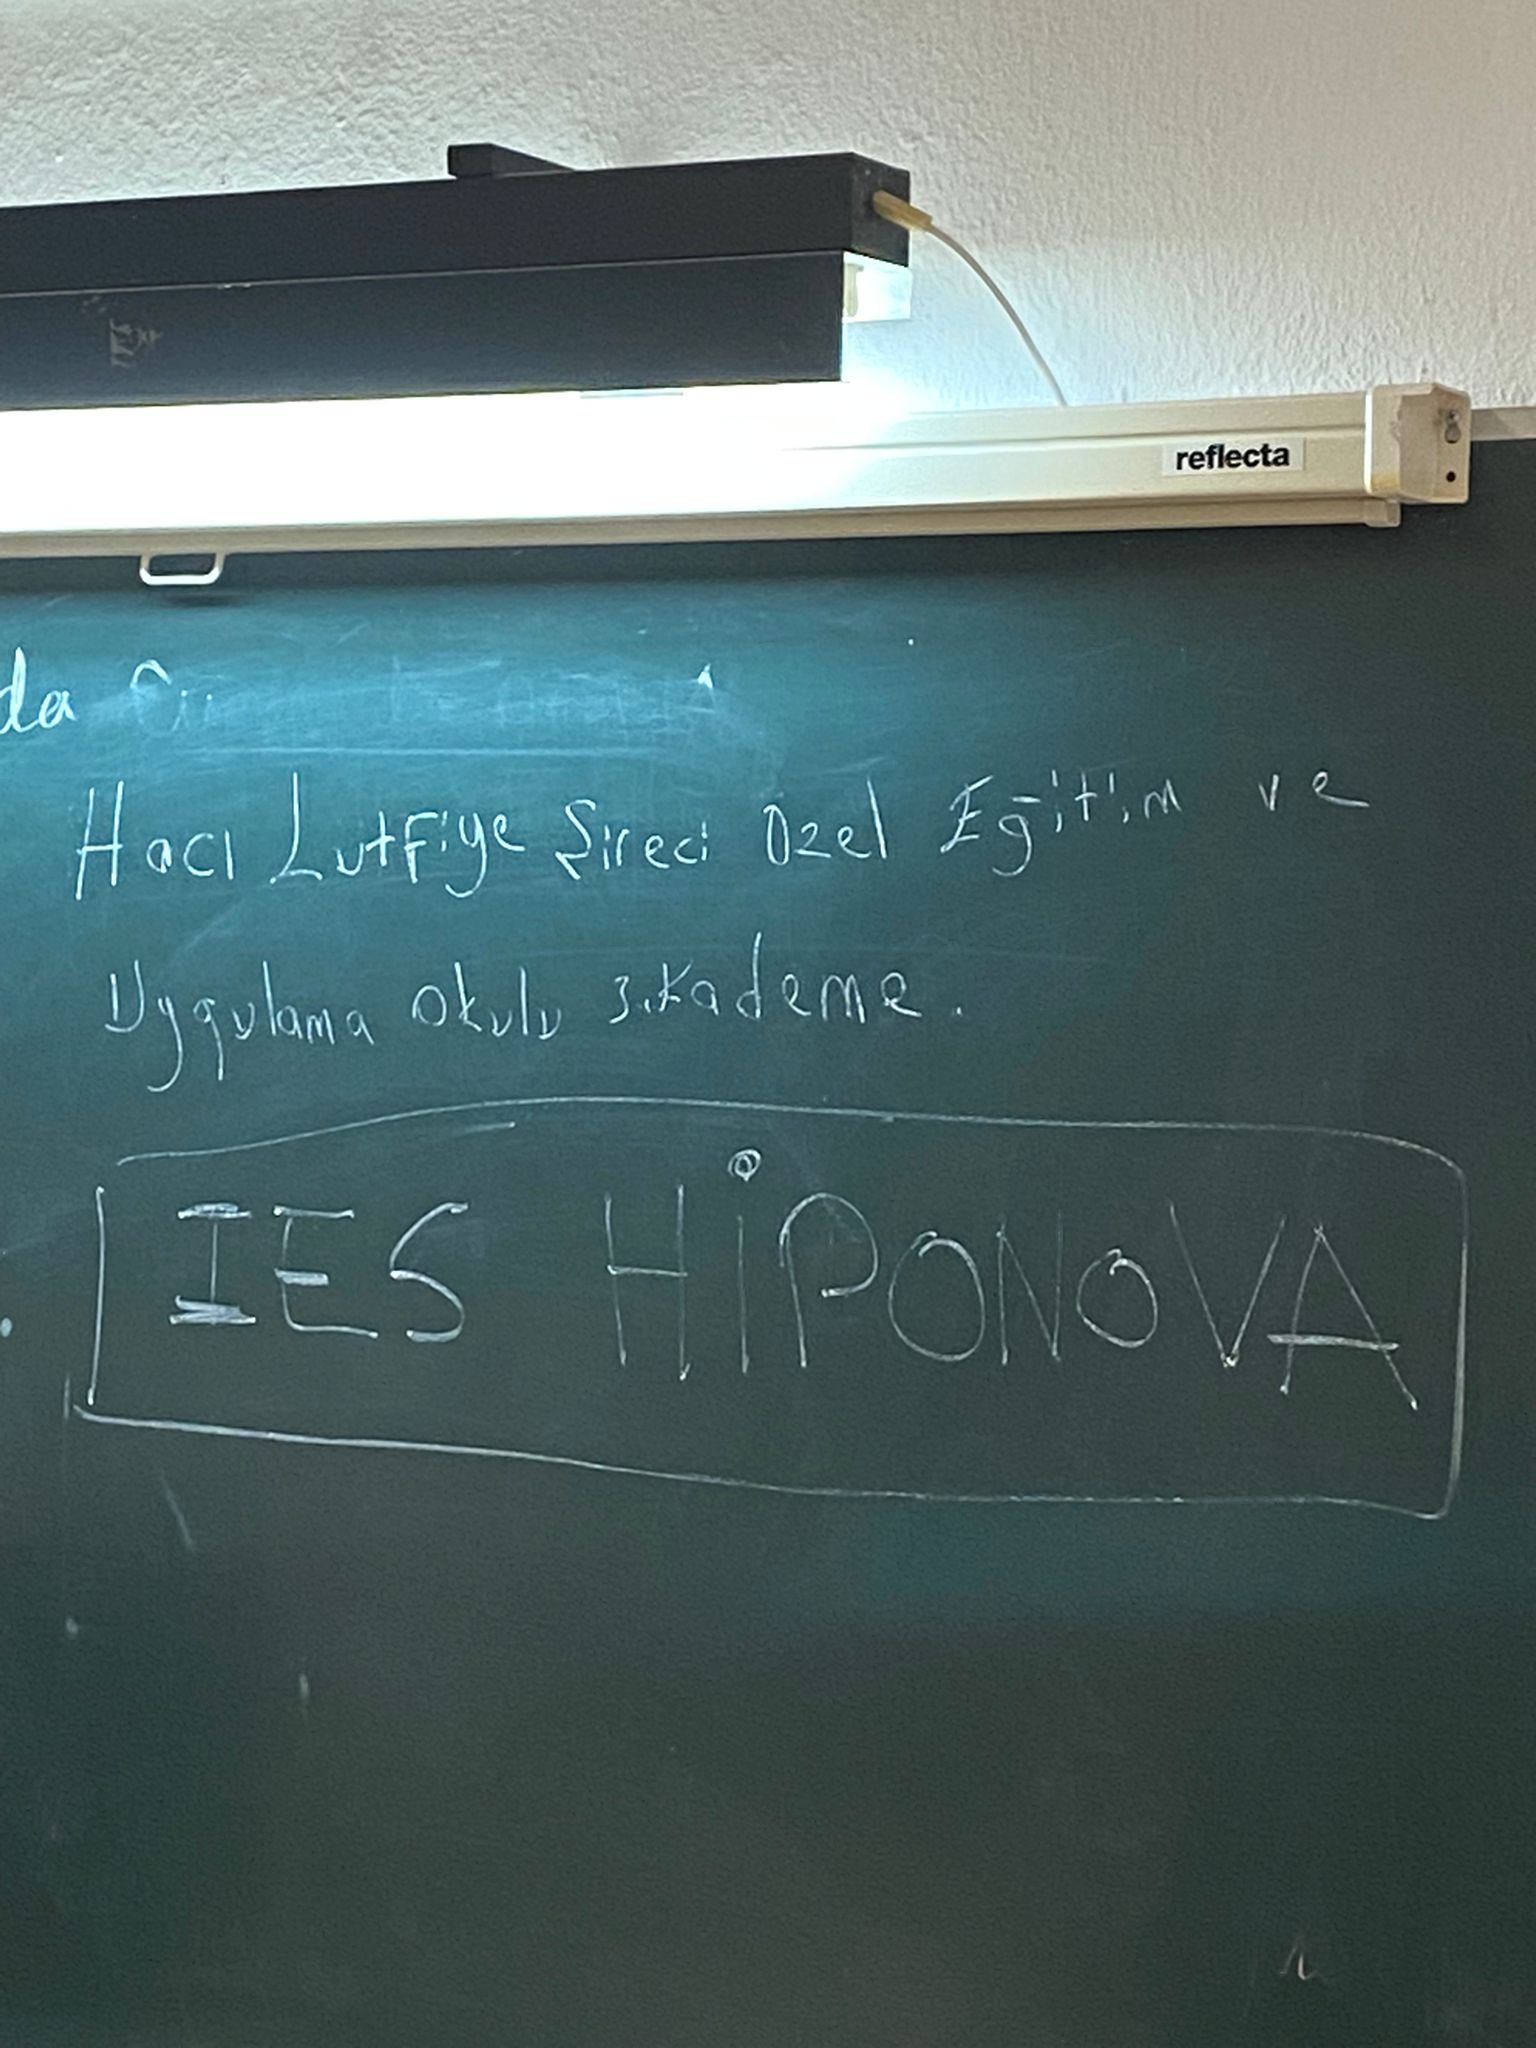 reflecta
da
Hacı Lutfiye Şireci Özel Eğitim ve
Uygulama Okulu 3.Kademe.
IES HİPONOVA